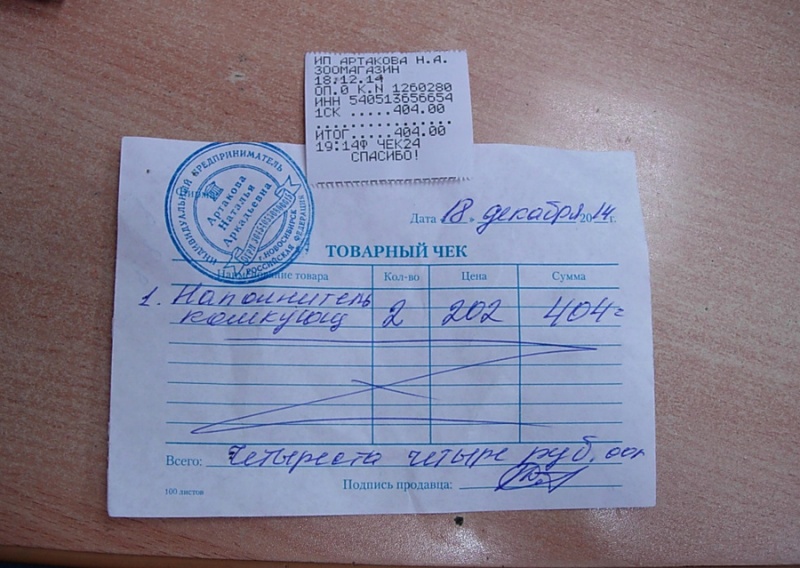 ИП АРТАКОВА Н.А.
ЗООМАГАЗИН
18.12.14
ОП.0 К.N 1260280
ИНН 540513656654
1СК .....404.00
..................
ИТОГ.....404.00
19:14Ф ЧЕК24
СПАСИБО!
ИНДИВИДУАЛЬНЫЙ ПРЕДПРИНИМАТЕЛЬ
Артакова
Наталья
Аркадьевна
г.НОВОСИБИРСК
РОССИЙСКАЯ ФЕДЕРАЦИЯ
Фирма
Дата 18 декабря 2014г.
ТОВАРНЫЙ ЧЕК
Наименование товара Кол-во Цена Сумма
1. Наполнитель
комкующ 2 202 404=
Всего: Четыреста четыре руб. 00к
Подпись продавца:
100 листов